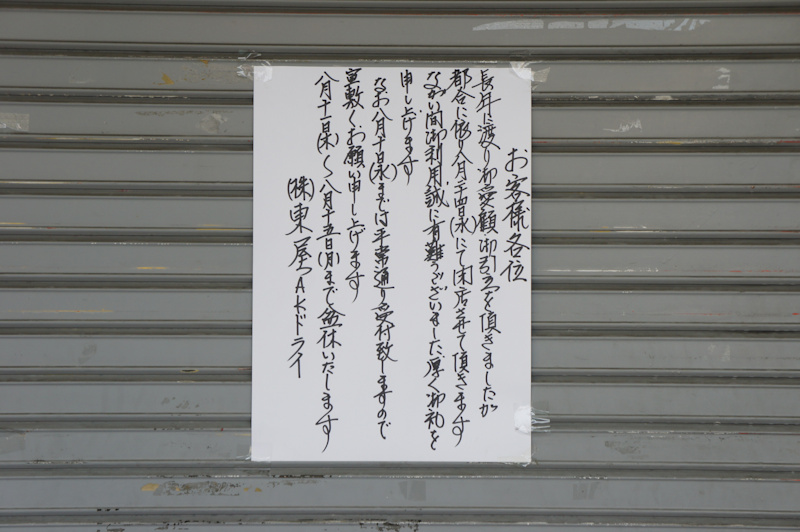 お客様各位
長年に渡り御愛顧御引立を頂きましたが
都合に依り八月二十四日(水)にて閉店させて頂きます
ながい間御利用誠に有難うございました、厚く御礼を
申し上げます
なお八月十日(水)までは平常通り受付致しますので
宜敷くお願い申し上げます
八月十一日(木)〜八月十五日(月)まで盆休いたします
(株)東屋 AKドライ